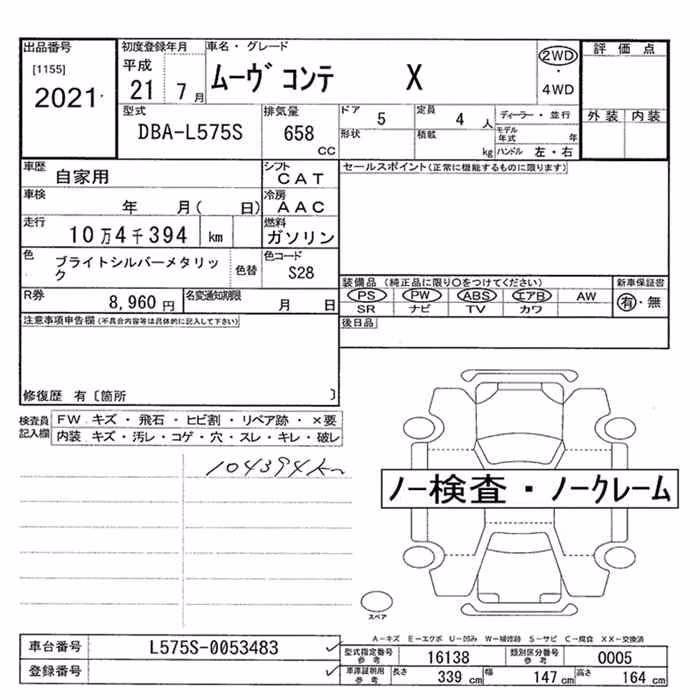 出品番号 初度登録年月 車名・グレード 2WD 評価点
[1155] 平成 ムーヴ コンテ X ・
2021 21 7月 4WD
型式 排気量 ドア 5 定員 4人 ディーラー・並行 外装 内装
DBA-L575S 658 cc 形状 積載 kg モデル年式 年
ハンドル 左・右
車歴 自家用 シフト CAT セールスポイント(正常に機能するものに限ります)
車検 年 月( 日) 冷房 AAC
走行 10万4千394 km 燃料 ガソリン
色 ブライトシルバーメタリック 色替 色コード S28
装備品 (純正品に限り○をつけてください) 新車保証書
PS PW ABS エアB AW 有・無
SR ナビ TV カワ
R券 8,960円 名変通知期限 月 日
後日品
注意事項申告欄(不具合内容等は具体的に記入して下さい)
修復歴 有〔箇所 〕
検査員記入欄 FW キズ・飛石・ヒビ割・リペア跡・×要
内装 キズ・汚レ・コゲ・穴・スレ・キレ・破レ
104394km
ノー検査・ノークレーム
スペア
A-キズ E-エクボ U-凹み W-補修跡 S-サビ C-腐食 XX-交換済
車台番号 L575S-0053483
登録番号
型式指定番号 参考 16138 類別区分番号 参考 0005
車庫証明用 参考 長さ 339 cm 幅 147 cm 高さ 164 cm